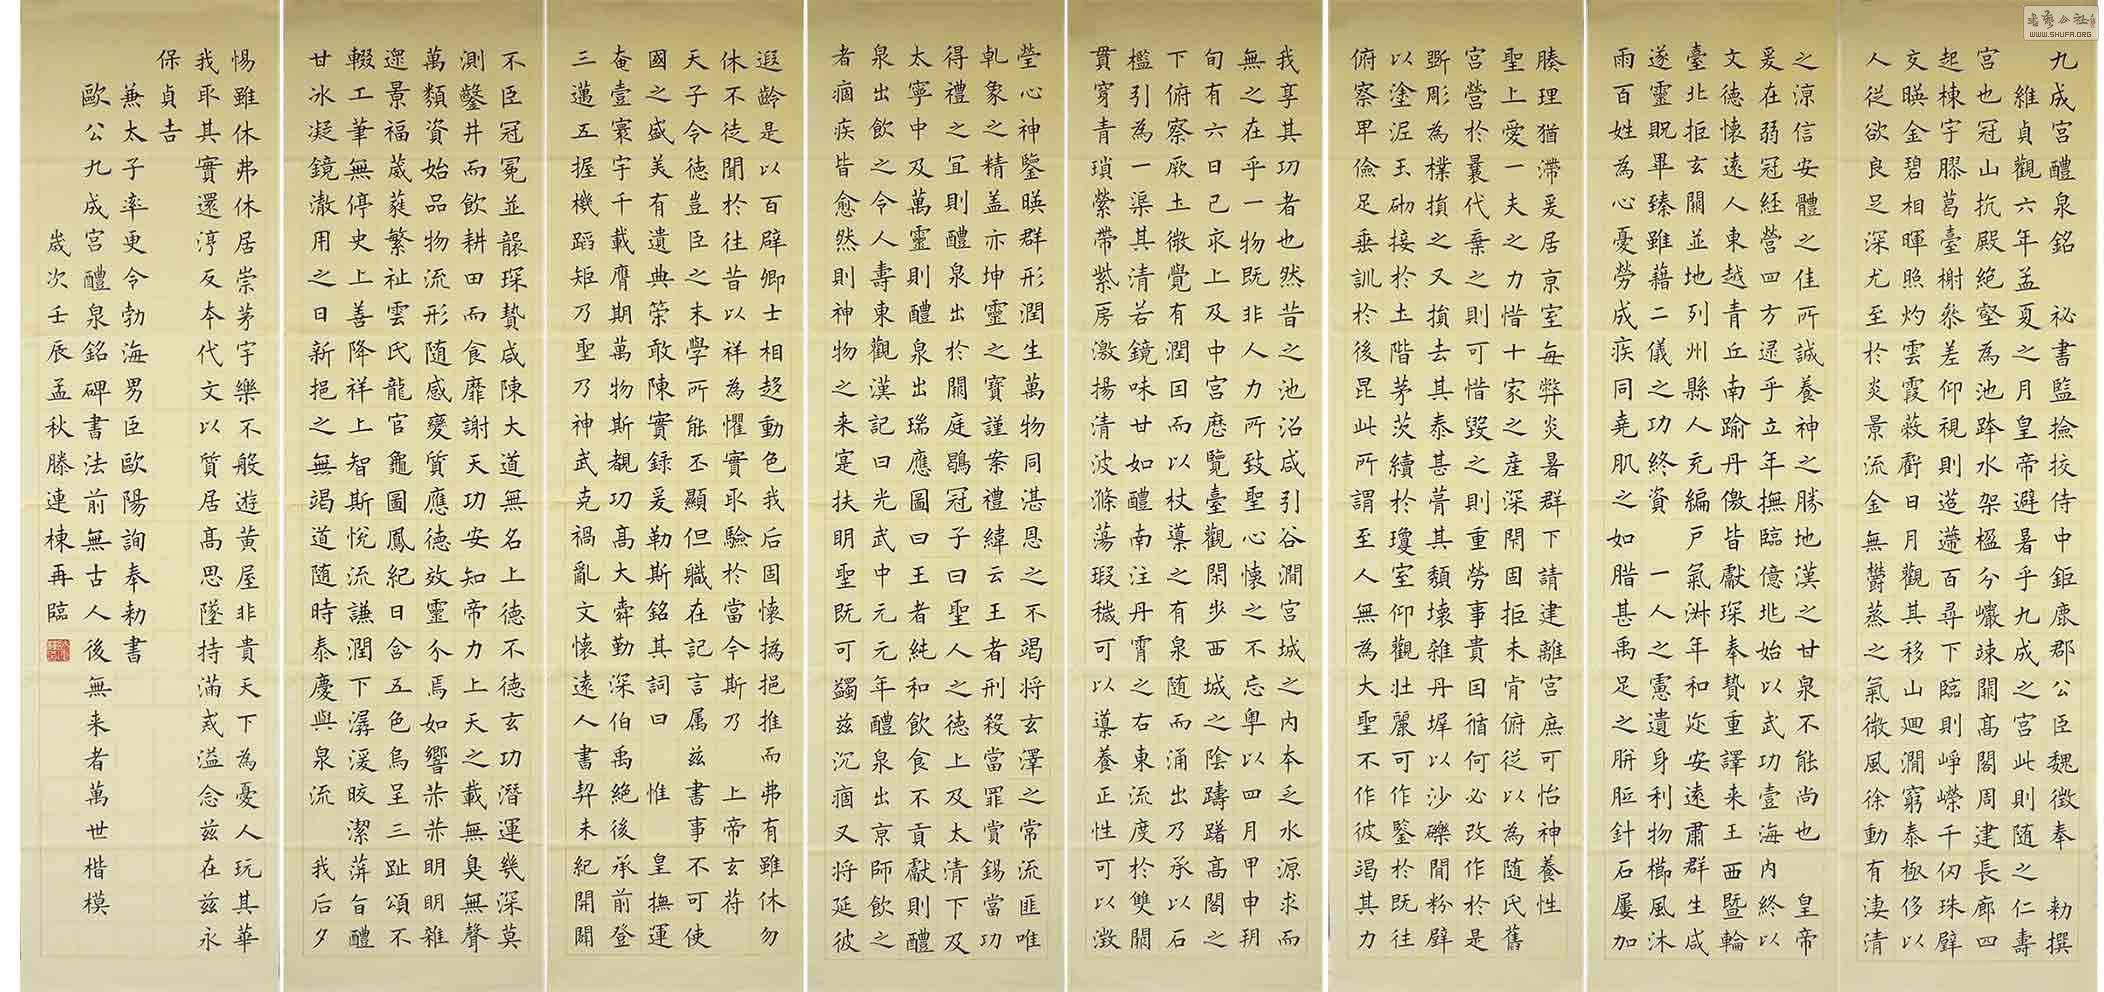 九成宮醴泉銘 祕書監撿挍侍中鉅鹿郡公臣魏徵奉 勅撰
維貞觀六年孟夏之月皇帝避暑乎九成之宮此則随之仁壽
宮也冠山抗殿絕壑為池跨水架楹分巖竦闕高閣周建長廊四
起棟宇膠葛臺榭叅差仰視則迢遰百尋下臨則崢嶸千仞珠璧
交暎金碧相暉照灼雲霞蔽虧日月觀其移山廻澗窮泰極侈以
人從欲良足深尤至於炎景流金無欝蒸之氣微風徐動有淒清
之涼信安體之佳所誠養神之勝地漢之甘泉不能尚也 皇帝
爰在弱冠經營四方逯乎立年撫臨億兆始以武功壹海內終以
文德懷遠人東越青丘南踰丹儌皆獻琛奉贄重譯来王西暨輪
臺北拒玄闕並地列州縣人充編戶氣淋年和迩安遠肅群生咸
遂靈貺畢臻雖藉二儀之功終資 一人之慮遺身利物櫛風沐
雨百姓為心憂勞成疾同堯肌之如腊甚禹足之胼胝針石屢加
腠理猶滯爰居京室每弊炎暑群下請建離宮庶可怡神養性
聖上愛一夫之力惜十家之產深閇固拒未肯俯從以為随氏舊
宮營於曩代棄之則可惜毀之則重勞事貴因循何必改作於是
斲彫為樸損之又損去其泰甚葺其頹壞雜丹墀以沙礫間粉壁
以塗泥玉砌接於土階茅茨續於瓊室仰觀壯麗可作鑒於既往
俯察卑儉足垂訓於後昆此所謂至人無為大聖不作彼竭其力
我享其功者也然昔之池沼咸引谷澗宮城之內本乏水源求而
無之在乎一物既非人力所致聖心懷之不忘粤以四月甲申朔
旬有六日己亥上及中宮歷覽臺觀閑步西城之陰躊躇高閣之
下俯察厥土微覺有潤因而以杖導之有泉随而涌出乃承以石
檻引為一渠其清若鏡味甘如醴南注丹霄之右東流度於雙闕
貫穿青瑣縈帶紫房激揚清波滌蕩瑕穢可以導養正性可以澂
瑩心神鑒暎群形潤生萬物同湛恩之不竭将玄澤之常流匪唯
乹象之精盖亦坤靈之寶謹案禮緯云王者刑殺當罪賞錫當功
得禮之宜則醴泉出於闕庭鶡冠子曰聖人之徳上及太清下及
太寧中及萬靈則醴泉出瑞應圖曰王者純和飲食不貢獻則醴
泉出飲之令人壽東觀漢記曰光武中元元年醴泉出京師飲之
者痼疾皆愈然則神物之来寔扶明聖既可蠲兹沉痼又将延彼
遐齡是以百辟卿士相趍動色我后固懷撝挹推而弗有雖休勿
休不徒聞於往昔以祥為懼實取驗於當今斯乃 上帝玄苻
天子令徳豈臣之末學所能丕顯但職在記言属兹書事不可使
國之盛美有遺典策敢陳實録爰勒斯銘其詞曰 惟 皇撫運
奄壹寰宇千載膺期萬物斯覩功高大舜勤深伯禹絕後承前登
三邁五握機蹈矩乃聖乃神武克禍亂文懷遠人書契未紀開闢
不臣冠冕並襲琛贄咸陳大道無名上德不德玄功潛運幾深莫
測鑿井而飲耕田而食靡謝天功安知帝力上天之載無臭無聲
萬類資始品物流形随感變質應徳效靈介焉如響赫赫明明雜
遝景福葳蕤繁祉雲氏龍官龜圖鳳紀日含五色烏呈三趾頌不
輟工筆無停史上善降祥上智斯悅流謙潤下潺湲皎潔蓱旨醴
甘冰凝鏡澈用之日新挹之無竭道随時泰慶與泉流 我后夕
惕雖休弗休居崇茅宇樂不般遊黃屋非貴天下為憂人玩其華
我取其實還淳反本代文以質居高思墜持滿戒溢念兹在兹永
保貞吉
兼太子率更令勃海男臣歐陽詢奉勅書
歐公九成宮醴泉銘碑書法前無古人後無来者萬世楷模
歲次壬辰孟秋滕連棟再臨
WWW.SHUFA.ORG